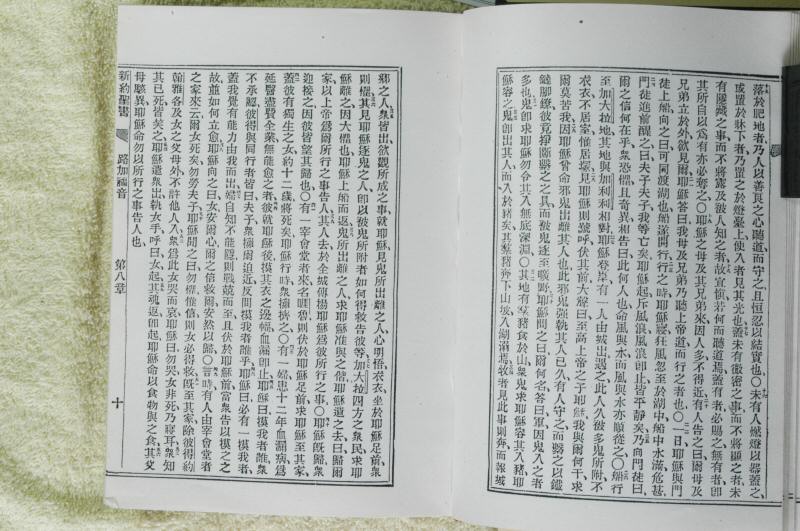 落於肥地者、乃人以善良之心聽道而守之、且恒忍以結實也、○未有人燃燈以器蓋之、
或置於牀下者、乃置之於燈臺上、使入者見其光也、蓋未有微密之事、而不將顯之者、未
有隱藏之事、而不將露及被人知之者、故宜愼若何而聽道焉、蓋有者、必賜之、無有者、即
其所自以爲有亦必奪之、○耶穌之母及其兄弟來、因人多不得近、有人告之曰、爾母及
兄弟立於外、欲見爾、耶穌答曰、我母及兄弟乃聽上帝道而行之者也、○一日耶穌與門
徒上船、向之曰、可同渡湖也、船遂開行、行之時、耶穌寢、狂風忽至於湖中、船中水滿、危甚、
門徒進前醒之曰、夫子、夫子、我等亡矣、耶穌起、斥風浪、風浪即止、皆平靜矣、乃向門徒曰、
爾之信何在乎、衆恐懼且奇異、相告曰、此何人也、命風與水、而風與水亦順從之、○船行
至加大拉地、其地與加利利相對、耶穌登岸、有一人由城出遇之、此人久被多鬼所附、不
衣衣、不居室、惟居塚、見耶穌則號呼、伏其前、大聲曰、至高上帝之子耶穌、我與爾何干、求
爾莫苦我、因耶穌曾命邪鬼出離其人也、此邪鬼强執其人已久、有人守之、而縶之以鐵
鏈脚鐐、彼竟掙斷縶之之具、而被鬼逐至曠野、耶穌問之曰、爾何名、答曰、軍、因鬼入之者
多也、鬼即求耶穌、勿令其入無底深淵、○其地有羣豬食於山、衆鬼求耶穌容其入豬、耶
穌容之、鬼即出其人、而入於豬矣、其羣豬奔下山坡、入湖溺焉、牧者見此事則奔、而報城
鄉之人、衆皆出欲觀所成之事、就耶穌、見鬼所出離之人、心明悟、衣衣、坐於耶穌足前、衆
則懼、其見耶穌逐鬼之人、即以被鬼所附者如何得救告彼等、加大拉四方之衆民求耶
穌離之、因大懼也、耶穌上船而返、鬼所出離之人、求耶穌准與之偕、耶穌遣之去曰、歸爾
家、以上帝爲爾所行之事告人、其人去、於全城傳揚耶穌爲彼所行之事、○耶穌旣歸、衆
迎接之、因彼皆望其歸也、○有一宰會堂者來、名睚魯、則伏於耶穌足前、求耶穌至其家、
蓋彼有獨生之女、約十二歲、將死矣、耶穌行時、衆擁擠之、○有一婦患十二年血漏病、爲
延醫盡費全業、無能愈之者、彼就耶穌後、摸其衣之邊幅、血漏即止、耶穌曰、摸我者誰、衆
不承認、彼得與同行者皆曰、夫子、衆擁爾迫近、反問摸我者誰乎、耶穌曰、必有一摸我者、
蓋我覺有能力由我而出、婦自知不能隱、則戰兢而至、且伏於耶穌前、當衆告以摸之之
故、並如何立愈、耶穌向之曰、女、安爾心、爾之信救爾、安然以歸、○言時、有人由宰會堂者
之家來云、爾女死矣、勿勞夫子、耶穌聞之曰、勿懼、惟信、則女必得救、旣至其家、除彼得約
翰雅各及女之父母外、不許他人入、衆爲此女哭而哀、耶穌曰、勿哭、女非死、乃寢耳、衆知
其已死、皆笑之、耶穌遣衆出、執女手、呼曰、女起、其魂返、即起、耶穌命以食物與之食、其父
母駭異、耶穌命勿以所行之事告人也、
新約聖書 路加福音 第八章 十